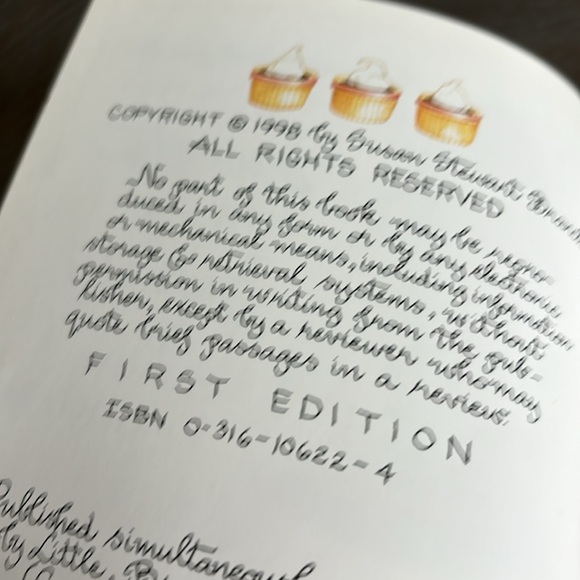 COPYRIGHT © 1998 by Susan Stewart
ALL RIGHTS RESERVED
No part of this book may be repro-
duced in any form or by any electronic
or mechanical means, including information
storage & retrieval systems, without
permission in writing from the pub-
lisher, except by a reviewer who may
quote brief passages in a review.
FIRST EDITION
ISBN 0-316-10622-4
Published simultaneousl
by Little,